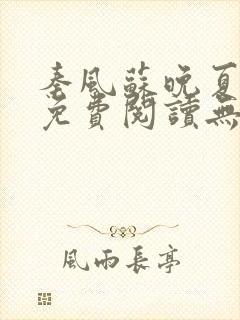 秦風蘇晚夏
免費閱讀無
風雨長亭